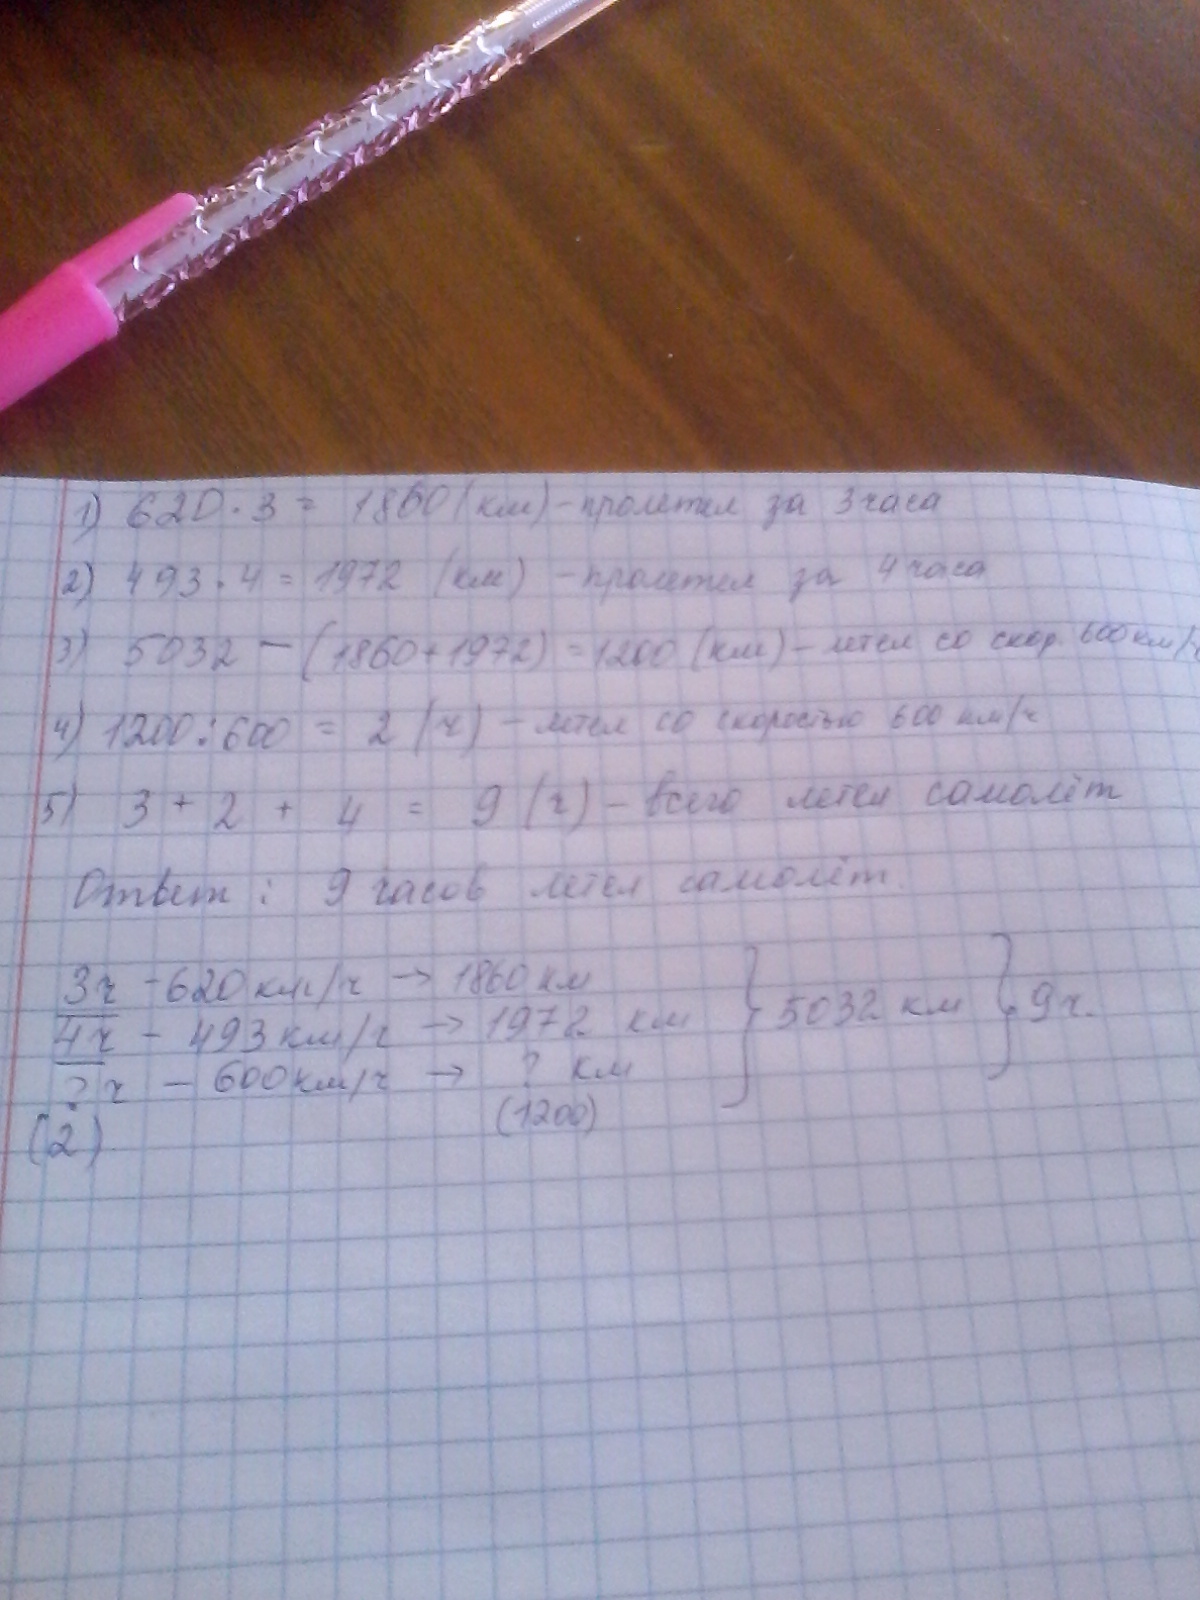 1) 620 · 3 = 1860 (км) - пролетел за 3 часа
2) 493 · 4 = 1972 (км) - пролетел за 4 часа
3) 5032 - (1860+1972) = 1200 (км) - летел со скор. 600 км/ч
4) 1200 : 600 = 2 (ч) - летел со скоростью 600 км/ч
5) 3 + 2 + 4 = 9 (ч) - всего летел самолёт
Ответ: 9 часов летел самолёт.
3ч - 620 км/ч → 1860 км
4ч - 493 км/ч → 1972 км } 5032 км } 9ч.
? ч - 600 км/ч → ? км
(2) (1200)